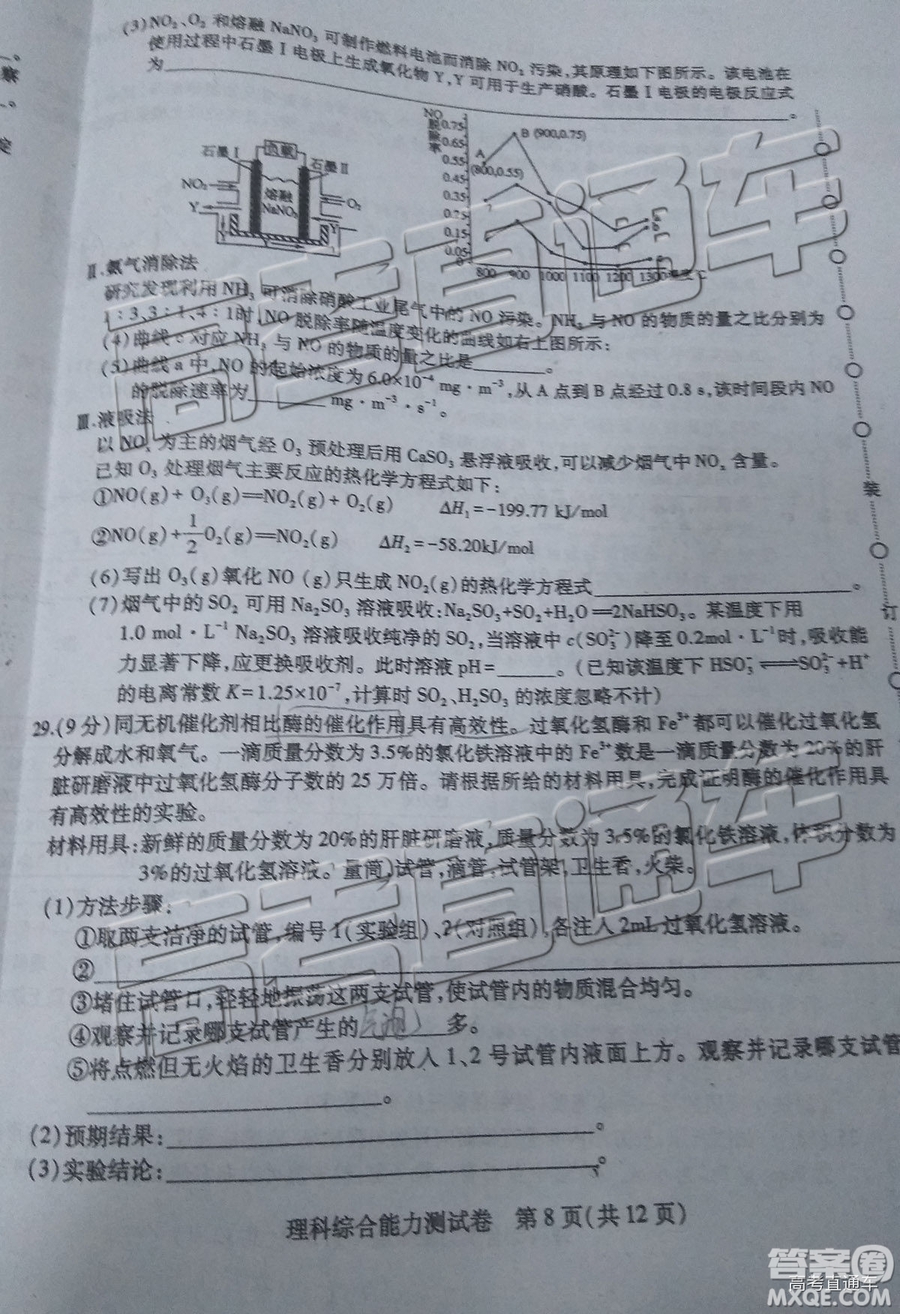 (3)NO₂、O₂ 和熔融 NaNO₃ 可制作燃料电池而消除 NO₂ 污染,其原理如下图所示。该电池在
使用过程中石墨Ⅰ电极上生成氧化物 Y,Y 可用于生产硝酸。石墨Ⅰ电极的电极反应式
为
。
察
定
石墨Ⅰ 负载 石墨Ⅱ
NO₂ 熔融 O₂
Y NaNO₃ Y
NO脱除率
0.75
0.65
0.55
0.45
0.35
0.25
0.15
0.05
0
A (800,0.55)
B (900,0.75)
800 900 1000 1100 1200 1300
Ⅱ.氨气消除法
研究发现利用 NH₃ 可消除硝酸工业尾气中的 NO 污染。NH₃ 与 NO 的物质的量之比分别为
1∶3、3∶1、4∶1时,NO 脱除率随温度变化的曲线如右上图所示:
(4)曲线 c 对应 NH₃ 与 NO 的物质的量之比是 。
(5)曲线 a 中,NO 的起始浓度为 6.0×10⁻⁴ mg·m⁻³,从 A 点到 B 点经过 0.8 s,该时间段内 NO
的脱除速率为 mg·m⁻³·s⁻¹。
Ⅲ.液吸法
以 NOₓ 为主的烟气经 O₃ 预处理后用 CaSO₃ 悬浮液吸收,可以减少烟气中 NOₓ 含量。
已知 O₃ 处理烟气主要反应的热化学方程式如下:
①NO(g)+ O₃(g)═NO₂(g)+ O₂(g) ΔH₁=-199.77 kJ/mol
②NO(g)+1/2O₂(g)═NO₂(g) ΔH₂=-58.20kJ/mol
(6)写出 O₃(g)氧化 NO (g)只生成 NO₂(g)的热化学方程式 。
(7)烟气中的 SO₂ 可用 Na₂SO₃ 溶液吸收:Na₂SO₃+SO₂+H₂O═2NaHSO₃。某温度下用
1.0 mol·L⁻¹ Na₂SO₃ 溶液吸收纯净的 SO₂,当溶液中 c(SO₃²⁻)降至 0.2mol·L⁻¹时,吸收能
力显著下降,应更换吸收剂。此时溶液 pH= 。(已知该温度下 HSO₃⁻⇌SO₃²⁻+H⁺
的电离常数 K=1.25×10⁻⁷,计算时 SO₂、H₂SO₃ 的浓度忽略不计)
29.(9 分)同无机催化剂相比酶的催化作用具有高效性。过氧化氢酶和 Fe³⁺ 都可以催化过氧化氢
分解成水和氧气。一滴质量分数为 3.5%的氯化铁溶液中的 Fe³⁺ 数是一滴质量分数为 20%的肝
脏研磨液中过氧化氢酶分子数的 25 万倍。请根据所给的材料用具,完成证明酶的催化作用具
有高效性的实验。
材料用具:新鲜的质量分数为 20%的肝脏研磨液,质量分数为 3.5%的氯化铁溶液,体积分数为
3%的过氧化氢溶液。量筒,试管,滴管,试管架,卫生香,火柴。
(1)方法步骤:
①取两支洁净的试管,编号 1(实验组)、2(对照组),各注入 2mL 过氧化氢溶液。
②
③堵住试管口,轻轻地振荡这两支试管,使试管内的物质混合均匀。
④观察并记录哪支试管产生的 气泡 多。
⑤将点燃但无火焰的卫生香分别放入 1、2 号试管内液面上方。观察并记录哪支试管
。
(2)预期结果: 。
(3)实验结论: 。
理科综合能力测试卷 第 8 页(共 12 页)
装
订
高考直通车
高考直通车
答案圈
高考直通车
MXQE.COM